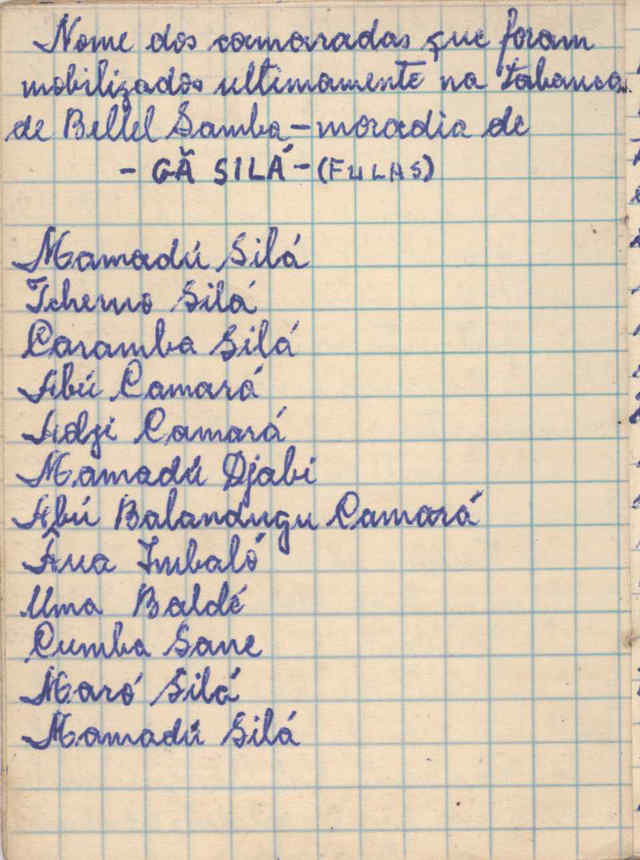 Nome dos camaradas que foram
mobilizados ultimamente na tabanca
de Bellel Samba - moradia de
- GÃ SILÁ - (FULAS)
Mamadú Silá
Tcherno Silá
Caramba Silá
Abú Camará
Adji Camará
Mamadú Djabi
Abú Balandugu Camará
Âua Imbaló
Uma Baldé
Cumba Sane
Maró Silá
Mamadú Silá